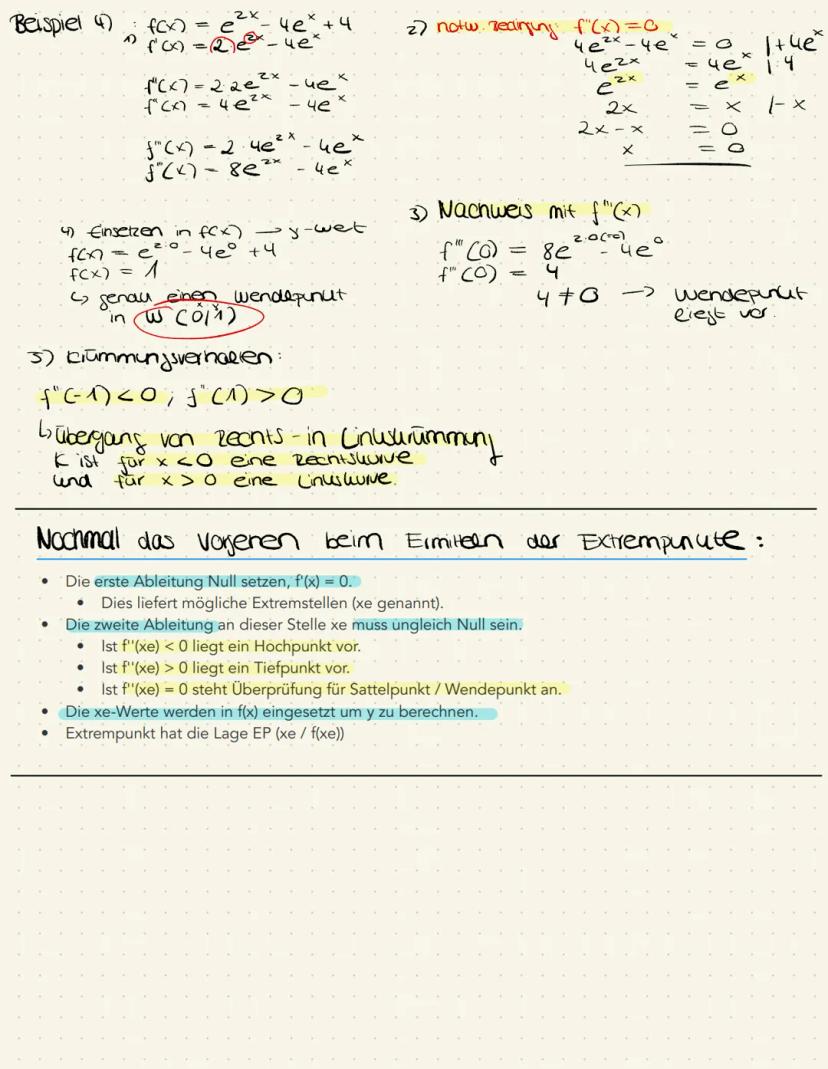 Beispiel 4) : f(x) = e^2x - 4e^x + 4
1) f'(x) = 2e^2x - 4e^x
f''(x) = 2·2e^2x - 4e^x
f''(x) = 4e^2x - 4e^x
f'''(x) = 2·4e^2x - 4e^x
f'''(x) = 8e^2x - 4e^x
2) notw. Bedingung: f''(x) = 0
4e^2x - 4e^x = 0 |+4e^x
4e^2x = 4e^x |:4
e^2x = e^x
2x = x |-x
2x - x = 0
x = 0
3) Nachweis mit f'''(x)
f'''(0) = 8e^2·0(=0) - 4e^0
f'''(0) = 4
4 ≠ 0 → Wendepunkt
liegt vor.
4) Einsetzen in f(x) → y-wet
f(x) = e^2·0 - 4e^0 + 4
f(x) = 1
↳ genau einen Wendepunkt
x y
in W (0/1)
5) Krümmungsverhalten:
f''(-1) < 0 ; f''(1) > 0
↳ Übergang von Rechts- in Linkskrümmung
K ist für x < 0 eine Rechtskurve
und für x > 0 eine Linkskurve.
Nochmal das Vorgehen beim Ermitteln der Extrempunkte:
• Die erste Ableitung Null setzen, f'(x) = 0.
• Dies liefert mögliche Extremstellen (xe genannt).
• Die zweite Ableitung an dieser Stelle xe muss ungleich Null sein.
• Ist f''(xe) < 0 liegt ein Hochpunkt vor.
• Ist f''(xe) > 0 liegt ein Tiefpunkt vor.
• Ist f''(xe) = 0 steht Überprüfung für Sattelpunkt / Wendepunkt an.
• Die xe-Werte werden in f(x) eingesetzt um y zu berechnen.
• Extrempunkt hat die Lage EP (xe / f(xe))